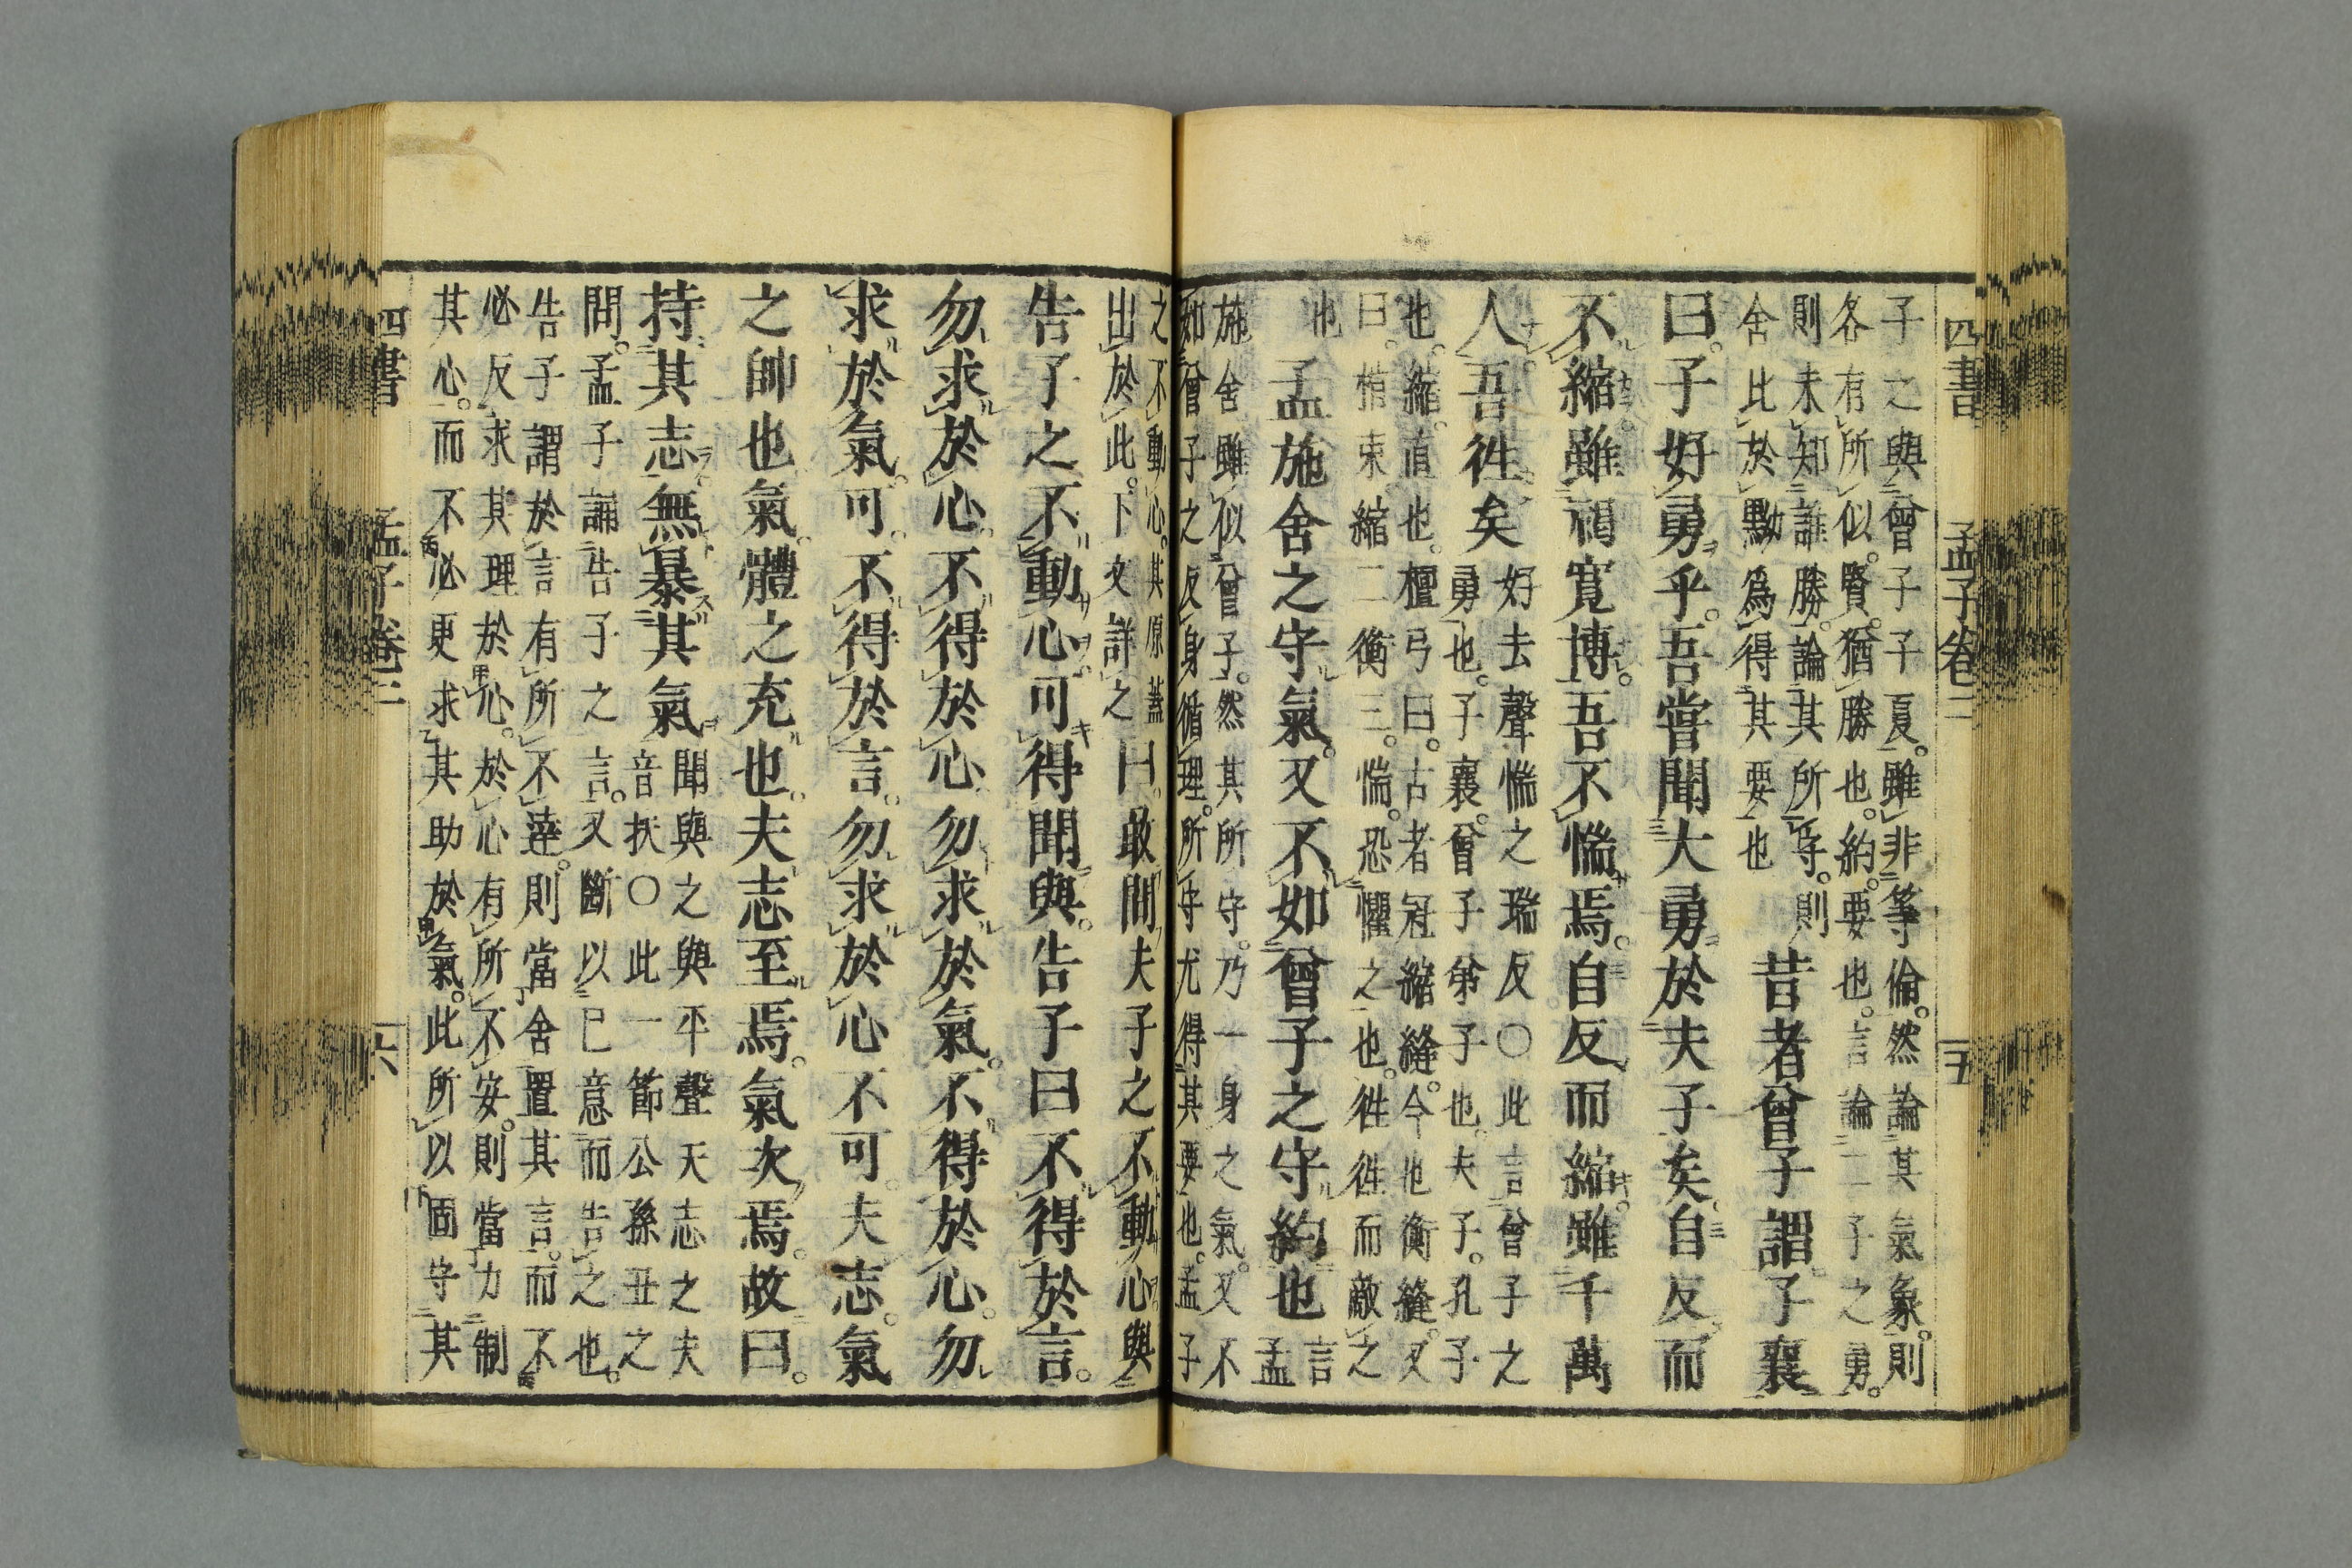 四書 孟子卷二 五
子之與曾子子夏。雖非等倫。然論其氣象。則
各有所似。賢。猶勝也。約。要也。言論二子之勇。
則未知誰勝。論其所守。則
舍此於黝爲得其要也
昔者曾子謂子襄
曰。子好勇乎。吾嘗聞大勇於夫子矣。自反而
不縮。雖褐寬博。吾不惴焉。自反而縮。雖千萬
人吾徃矣
好去聲惴之瑞反○此言曾子之
勇也。子襄。曾子弟子也。夫子。孔子
也。縮。直也。檀弓曰。古者冠縮縫。今也衡縫。又
曰。棺束。縮二衡三。惴。恐懼之也。徃徃而敵之
也
孟施舍之守氣。又不如曾子之守約也
言
孟
施舍雖似曾子。然其所守。乃一身之氣。又不
如曾子之反身循理。所守尤得其要也。孟子
之不動心。其原蓋
出於此。下文詳之
曰。敢問夫子之不動心與
告子之不動心可得聞與。告子曰不得於言。
勿求於心。不得於心勿求於氣。不得於心。勿
求於氣。可。不得於言。勿求於心不可。夫志。氣
之帥也氣。體之充也。夫志至焉。氣次焉。故曰。
持其志無暴其氣
聞與之與平聲夫志之夫
音扶○此一節公孫丑之
問。孟子誦告子之言。又斷以己意而告之也。
告子謂於言有所不達。則當舍置其言。而不
必反求其理於心。於心有所不安。則當力制
其心。而不必更求其助於氣。此所以固守其
四書 孟子卷二 六